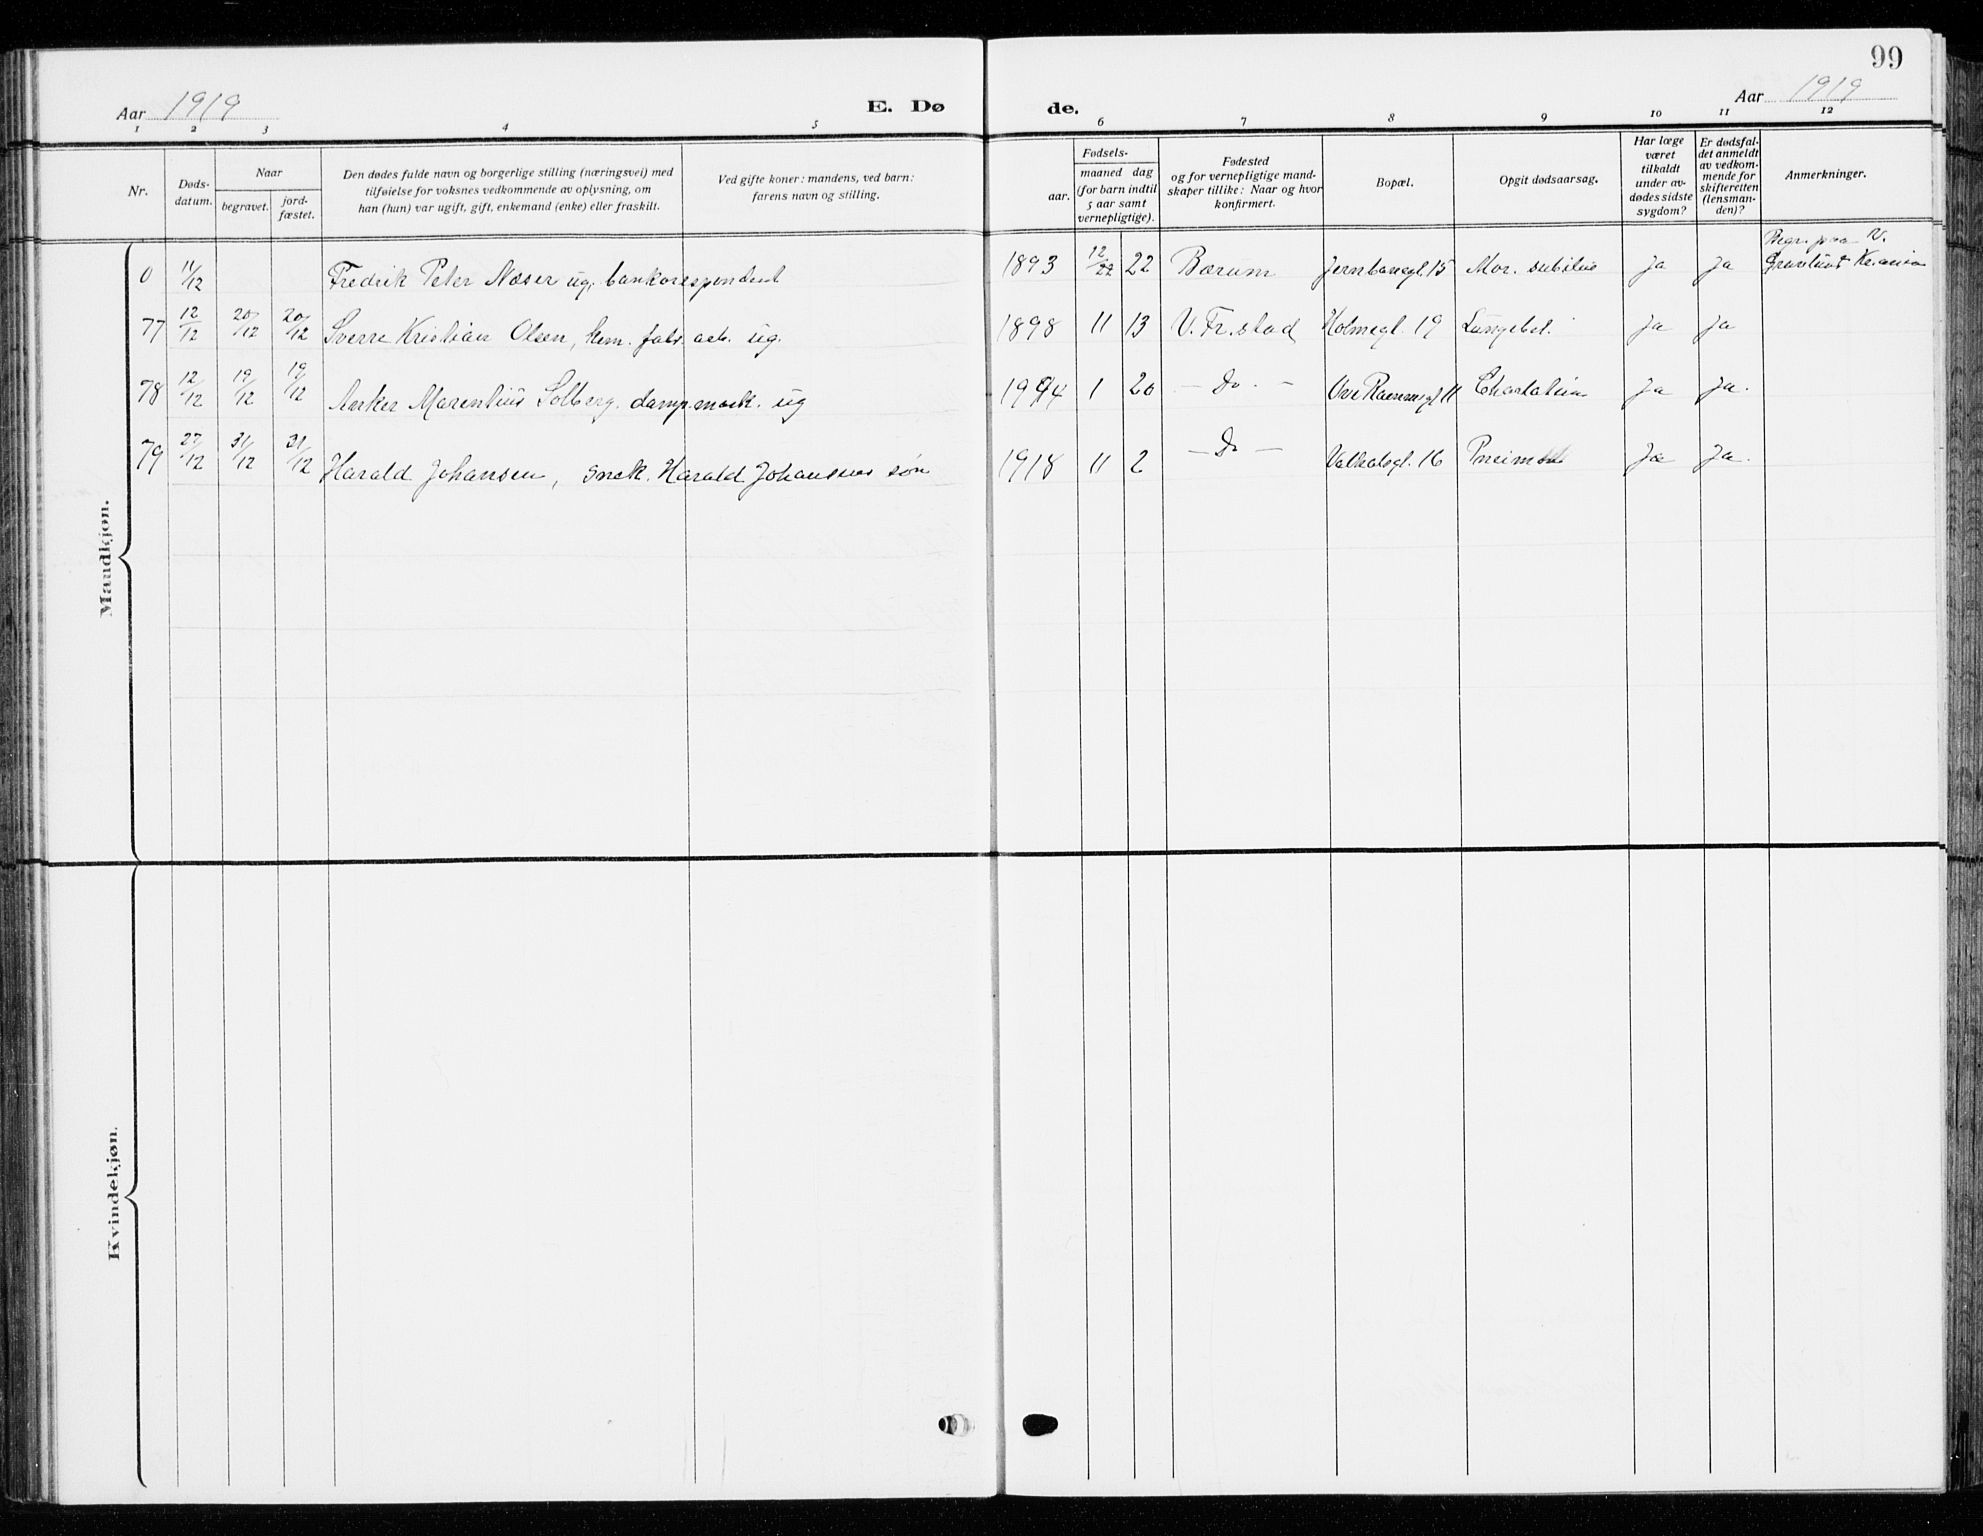 99
Aar 1919 E. Dø de. Aar 1919
1 2 3 4 5 6 7 8 9 10 11 12
Nr.
Døds-
datum.
Naar
begravet.
jord-
fæstet.
Den dødes fulde navn og borgerlige stilling (næringsvei) med
tilføielse for voksnes vedkommende av oplysning, om
han (hun) var ugift, gift, enkemand (enke) eller fraskilt.
Ved gifte koner: mandens, ved barn:
farens navn og stilling.
Fødsels-
aar.
maaned dag
(for barn indtil
5 aar samt
vernepligtige).
Fødested
og for vernepligtige mand-
skaper tillike: Naar og hvor
konfirmert.
Bopæl.
Opgit dødsaarsag.
Har læge
været
tilkaldt
under av-
dødes sidste
sygdom?
Er dødsfal-
det anmeldt
av vedkom-
mende for
skifteretten
(lensman-
den)?
Anmerkninger.
Mandkjøn.
0 11/12 Fredrik Peter Næser ug. bankorespondent 1893 12/22 22 Bærum Jernbanegt. 15 Mor. subitus Ja Ja Begr. paa V. Gravlund Kr.ania
77 12/12 20/12 20/12 Sverre Kristian Olsen, kem. fabr. arb. ug. 1898 11 13 V. Fr.stad Holmegt. 19 Lungebet. Ja Ja
78 12/12 19/12 19/12 Anker Marentius Solberg. damp.mask. ug 1 20 — Do. — Ja Ja.
79 27/12 31/12 31/12 Harald Johansen, snek. Harald Johansens søn 1918 11 2 — Do — 16 Ja Ja.
Kvindekjøn.